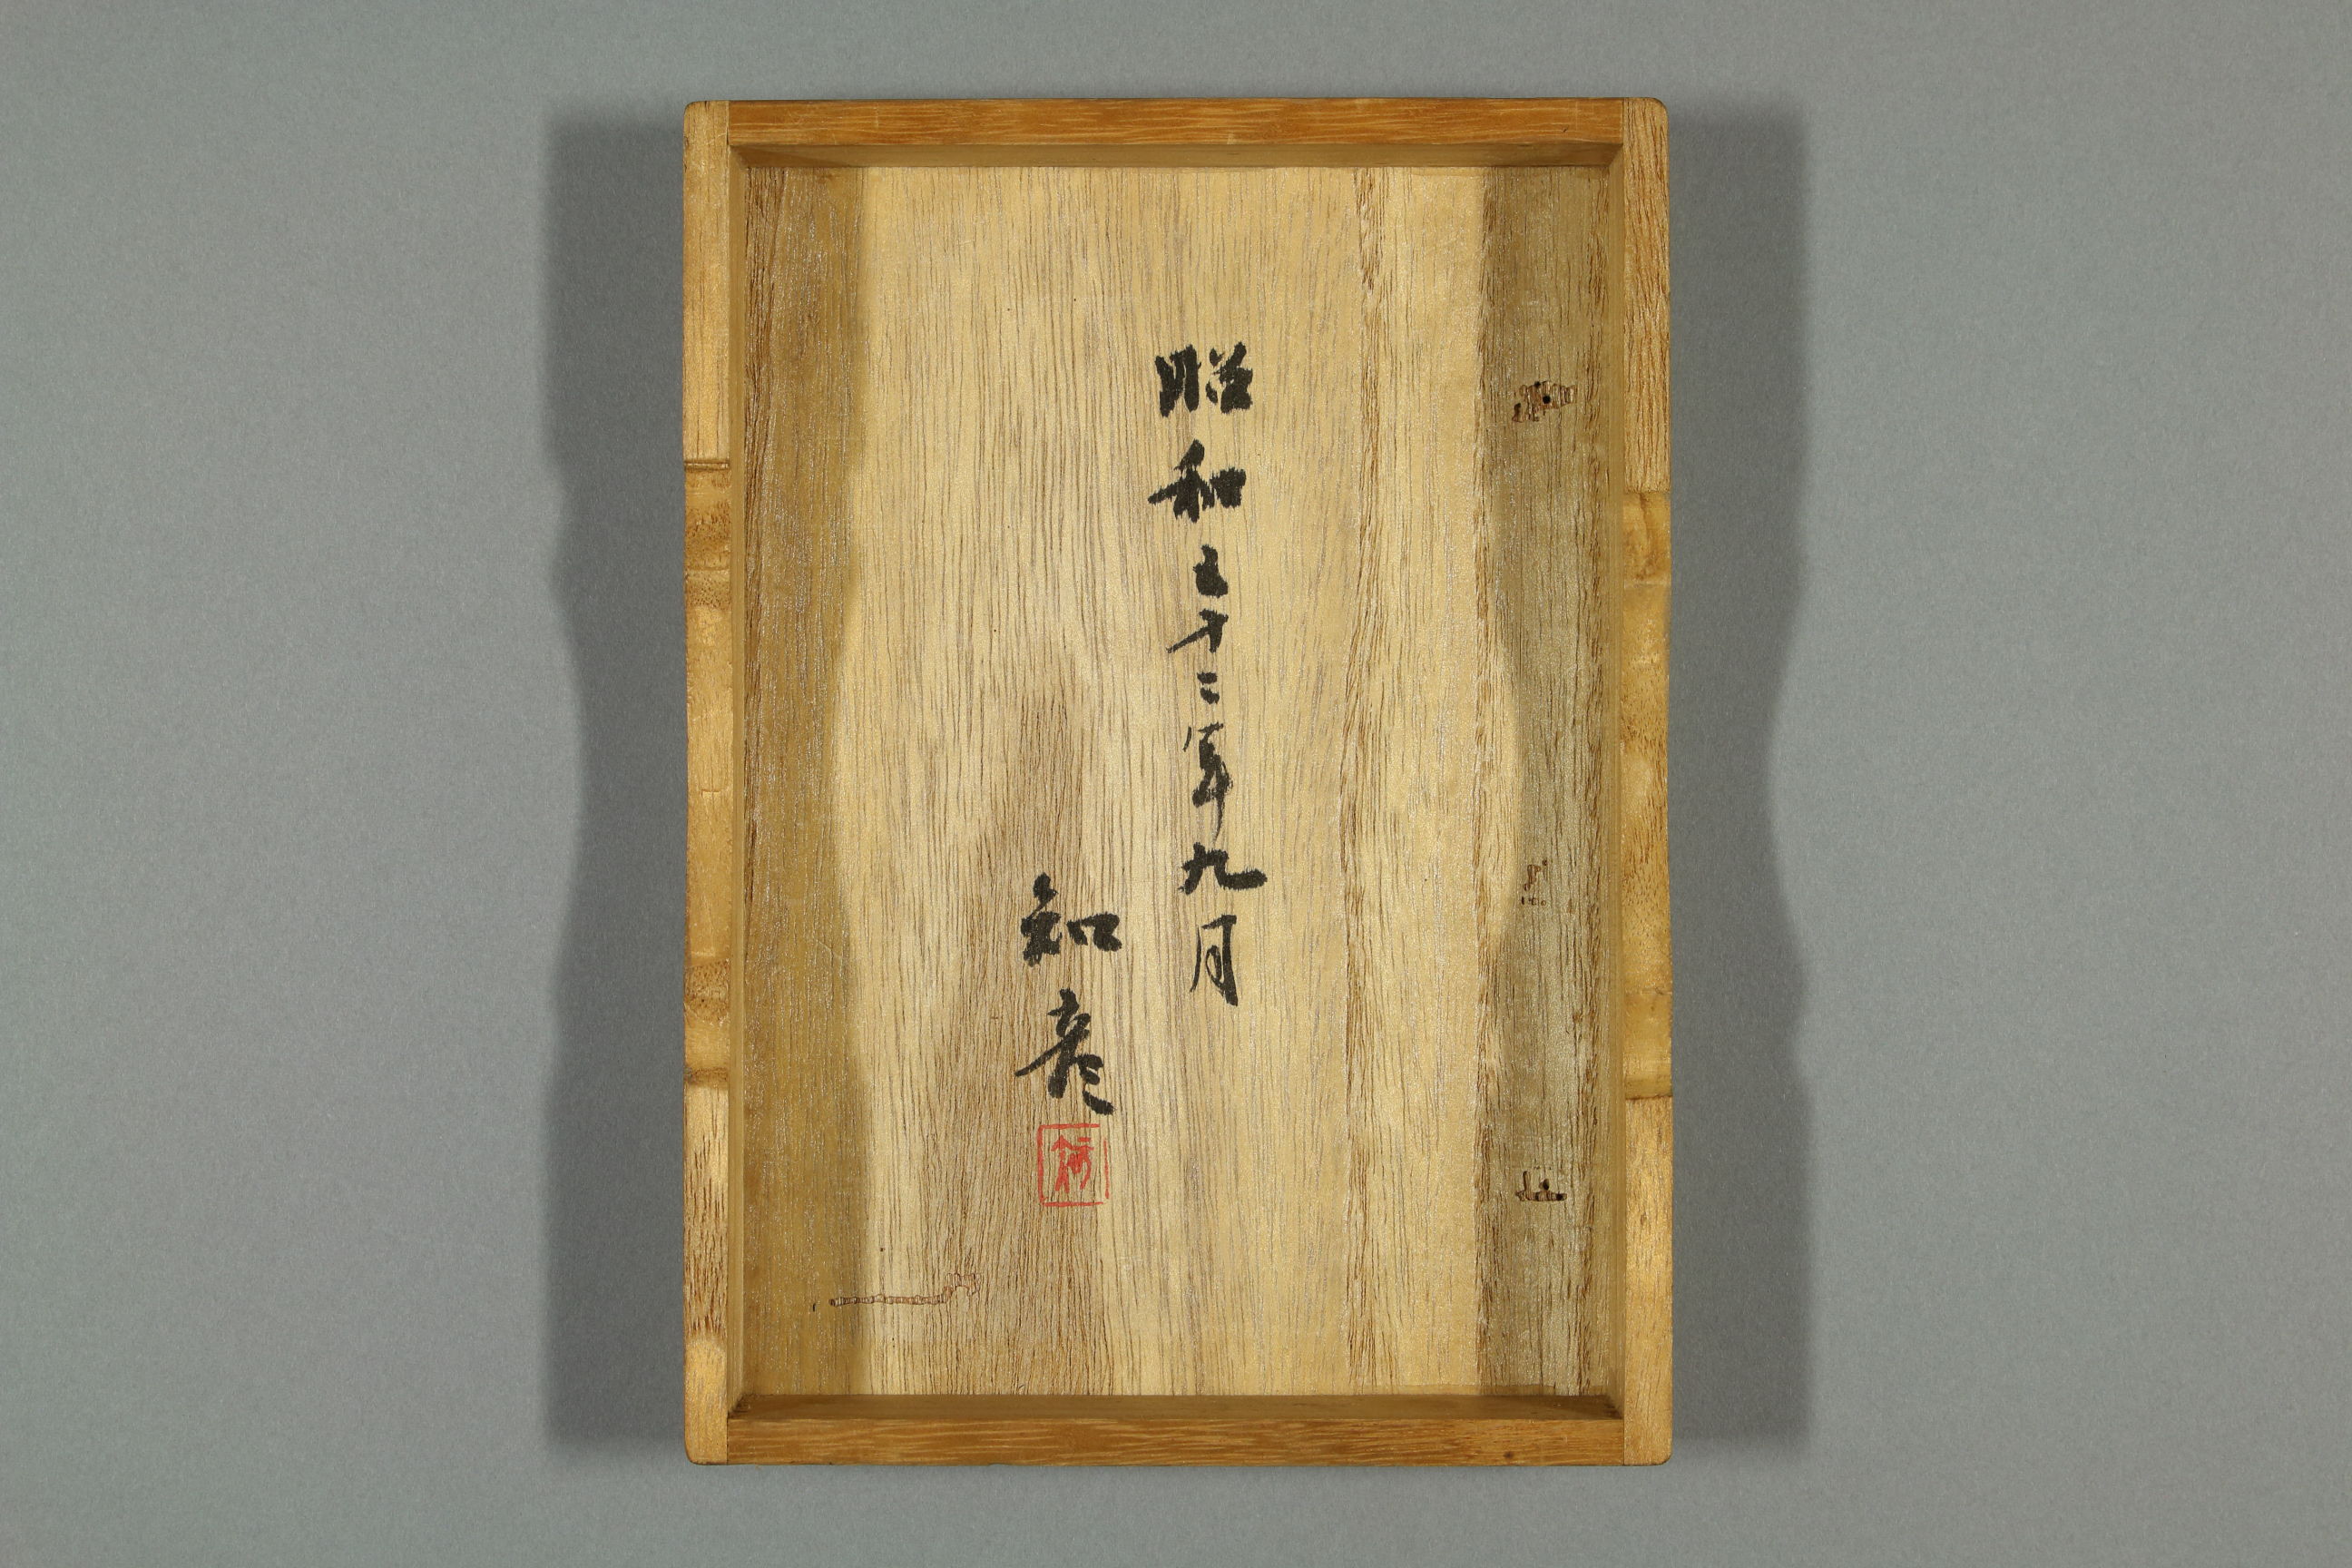 昭和五十二年九月
知彦